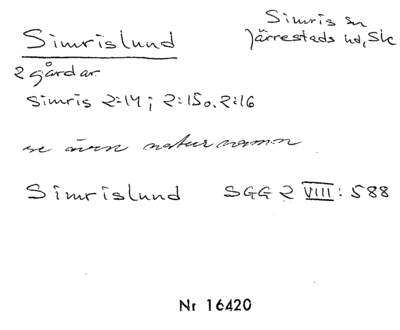 Simrislund
Simris sn
Järrestads hd, Sk
2 gårdar
Simris 2:14; 2:15 o. 2:16
se även naturnamn
Simrislund SGG 2 VIII: 588
Nr 16420